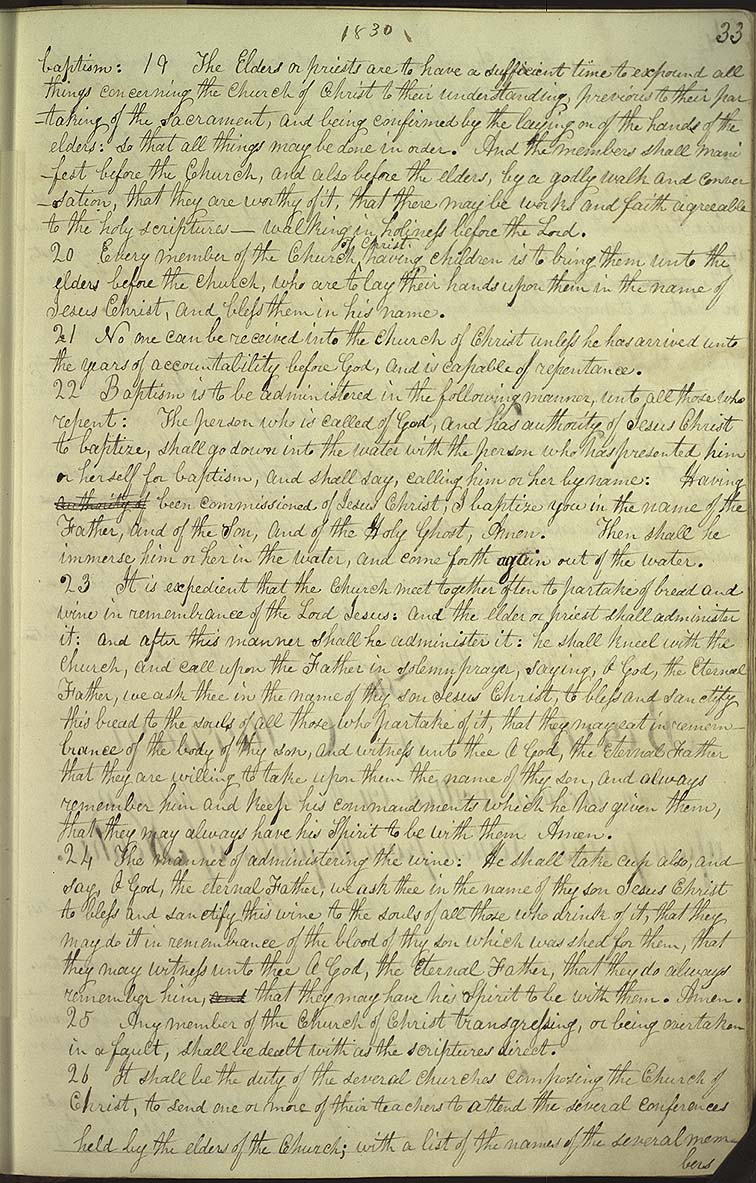 1830
33
baptism: 19 The Elders or priests are to have a sufficient time to expound all
things concerning the Church of Christ to their understanding, previous to their par
-taking of the Sacrament, and being confirmed by the laying on of the hands of the
elders: so that all things may be done in order. And the members shall mani
-fest before the Church, and also before the elders, by a godly walk and conver
-sation, that they are worthy of it, that there may be works and faith agreeable
to the holy scriptures— walking in holiness before the Lord.
20 Every member of the Church of Christ having children is to bring them unto the
elders before the church, who are to lay their hands upon them in the name of
Jesus Christ, and bless them in his name.
21 No one can be received into the Church of Christ unless he has arrived unto
the years of accountability before God, and is capable of repentance.
22 Baptism is to be administered in the following manner, unto all those who
repent: The person who is called of God, and has authority of Jesus Christ
to baptize, shall go down into the water with the person who has presented him
or herself for baptism, and shall say, calling him or her by name: Having
authority of been commissioned of Jesus Christ, I baptize you in the name of the
Father, and of the Son, and of the Holy Ghost, Amen. Then shall he
immerse him or her in the water, and come forth again out of the water.
23 It is expedient that the Church meet together often to partake of bread and
wine in remembrance of the Lord Jesus: and the elder or priest shall administer
it: and after this manner shall he administer it: he shall kneel with the
Church, and call upon the Father in solemn prayer, saying, O God, the Eternal
Father, we ask thee in the name of thy son Jesus Christ to bless and sanctify
this bread to the souls of all those who partake of it, that they may eat in remem-
brance of the body of thy son, and witness unto thee O God, the Eternal Father
that they are willing to take upon them the name of thy son, and always
remember him and keep his commandments which he has given them,
that they may always have his Spirit to be with them Amen.
24 The manner of administering the wine: He shall take cup also, and
say, O God, the eternal Father, we ask thee in the name of thy son Jesus Christ
to bless and sanctify this wine to the souls of all those who drink of it, that they
may do it in remembrance of the blood of thy son which was shed for them, that
they may witness unto thee O God, the Eternal Father, that they do always
remember him, and that they may have his Spirit to be with them. Amen.
25 Any member of the Church of Christ transgressing, or being overtaken
in a fault, shall be dealt with as the scriptures direct.
26 It shall be the duty of the several churches composing the Church of
Christ, to send one or more of their teachers to attend the several conferences
held by the elders of the Church; with a list of the names of the several mem-
bers